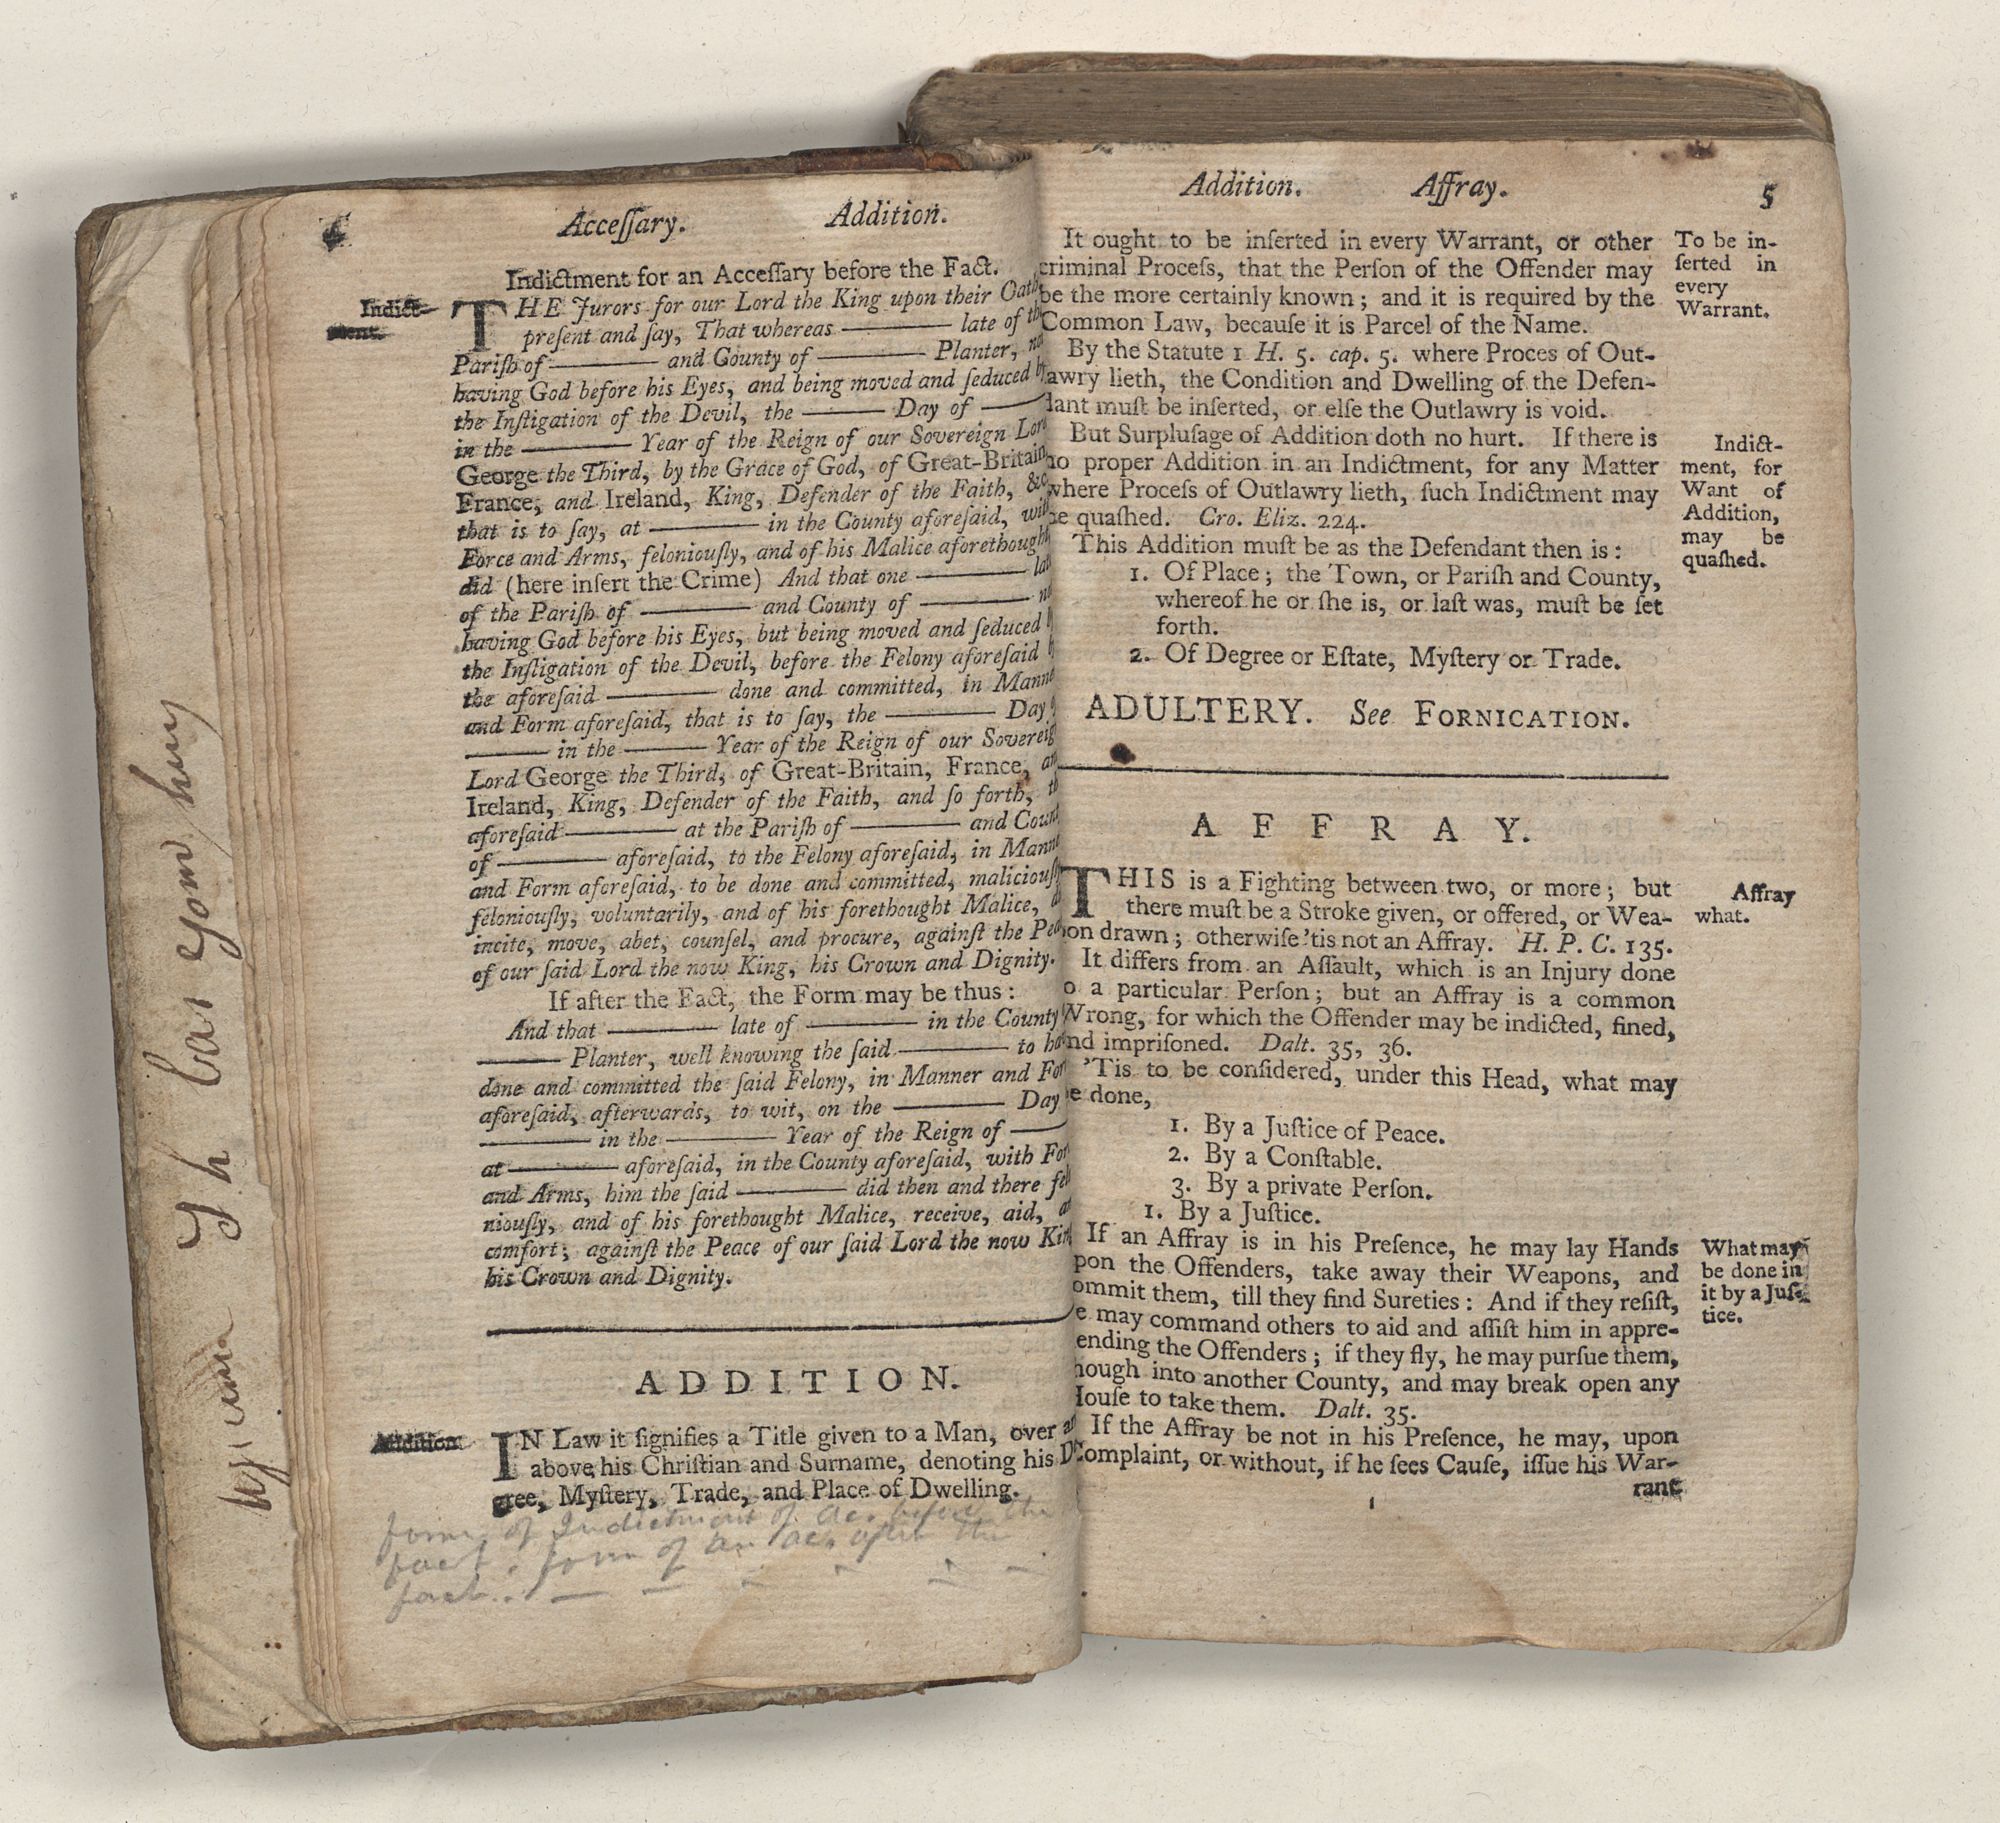 Accessary. Addition.
Indictment for an Accessary before the Fact.
Indict-
ment.
THE Jurors for our Lord the King upon their Oath
present and say, That whereas ——— late of the
Parish of ——— and County of ——— Planter, not
having God before his Eyes, and being moved and seduced by
the Instigation of the Devil, the ——— Day of ———
in the ——— Year of the Reign of our Sovereign Lord
George the Third, by the Grace of God, of Great-Britain,
France, and Ireland, King, Defender of the Faith, &c.
that is to say, at ——— in the County aforesaid, with
Force and Arms, feloniously, and of his Malice aforethought,
did (here insert the Crime) And that one ——— late
of the Parish of ——— and County of ——— not
having God before his Eyes, but being moved and seduced by
the Instigation of the Devil, before the Felony aforesaid by
the aforesaid ——— done and committed, in Manner
and Form aforesaid, that is to say, the ——— Day of
——— in the ——— Year of the Reign of our Sovereign
Lord George the Third, of Great-Britain, France, and
Ireland, King, Defender of the Faith, and so forth, the
aforesaid ——— at the Parish of ——— and County
of ——— aforesaid, to the Felony aforesaid, in Manner
and Form aforesaid, to be done and committed, maliciously,
feloniously, voluntarily, and of his forethought Malice, did
incite, move, abet, counsel, and procure, against the Peace
of our said Lord the now King, his Crown and Dignity.
If after the Fact, the Form may be thus:
And that ——— late of ——— in the County
——— Planter, well knowing the said ——— to have
done and committed the said Felony, in Manner and Form
aforesaid, afterwards, to wit, on the ——— Day
——— in the ——— Year of the Reign of ———
at ——— aforesaid, in the County aforesaid, with Force
and Arms, him the said ——— did then and there felo-
niously, and of his forethought Malice, receive, aid, and
comfort; against the Peace of our said Lord the now King
his Crown and Dignity.
ADDITION.
Addition
IN Law it signifies a Title given to a Man, over and
above his Christian and Surname, denoting his De-
gree, Mystery, Trade, and Place of Dwelling.
form of Indictment of Ac. before the
fact. form of an ac. after the
fact..
Addition. Affray. 5
It ought to be inserted in every Warrant, or other
criminal Process, that the Person of the Offender may
be the more certainly known; and it is required by the
Common Law, because it is Parcel of the Name.
To be in-
serted in
every
Warrant.
By the Statute 1 H. 5. cap. 5. where Proces of Out-
lawry lieth, the Condition and Dwelling of the Defen-
dant must be inserted, or else the Outlawry is void.
But Surplusage of Addition doth no hurt. If there is
no proper Addition in an Indictment, for any Matter
where Process of Outlawry lieth, such Indictment may
be quashed. Cro. Eliz. 224.
Indict-
ment, for
Want of
Addition,
may be
quashed.
This Addition must be as the Defendant then is:
1. Of Place; the Town, or Parish and County,
whereof he or she is, or last was, must be set
forth.
2. Of Degree or Estate, Mystery or Trade.
ADULTERY. See FORNICATION.
AFFRAY.
THIS is a Fighting between two, or more; but
there must be a Stroke given, or offered, or Wea-
pon drawn; otherwise 'tis not an Affray. H. P. C. 135.
Affray
what.
It differs from an Assault, which is an Injury done
to a particular Person; but an Affray is a common
Wrong, for which the Offender may be indicted, fined,
and imprisoned. Dalt. 35, 36.
'Tis to be considered, under this Head, what may
be done,
1. By a Justice of Peace.
2. By a Constable.
3. By a private Person.
1. By a Justice.
If an Affray is in his Presence, he may lay Hands
upon the Offenders, take away their Weapons, and
commit them, till they find Sureties: And if they resist,
he may command others to aid and assist him in appre-
hending the Offenders; if they fly, he may pursue them,
though into another County, and may break open any
House to take them. Dalt. 35.
What may
be done in
it by a Jus-
tice.
If the Affray be not in his Presence, he may, upon
Complaint, or without, if he sees Cause, issue his War-
rant